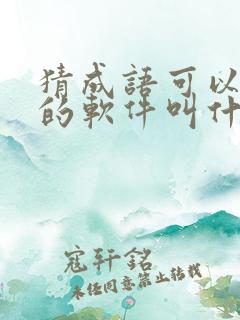 猜成語可以
的軟件叫什
寇轩銘
未经同意禁止转载